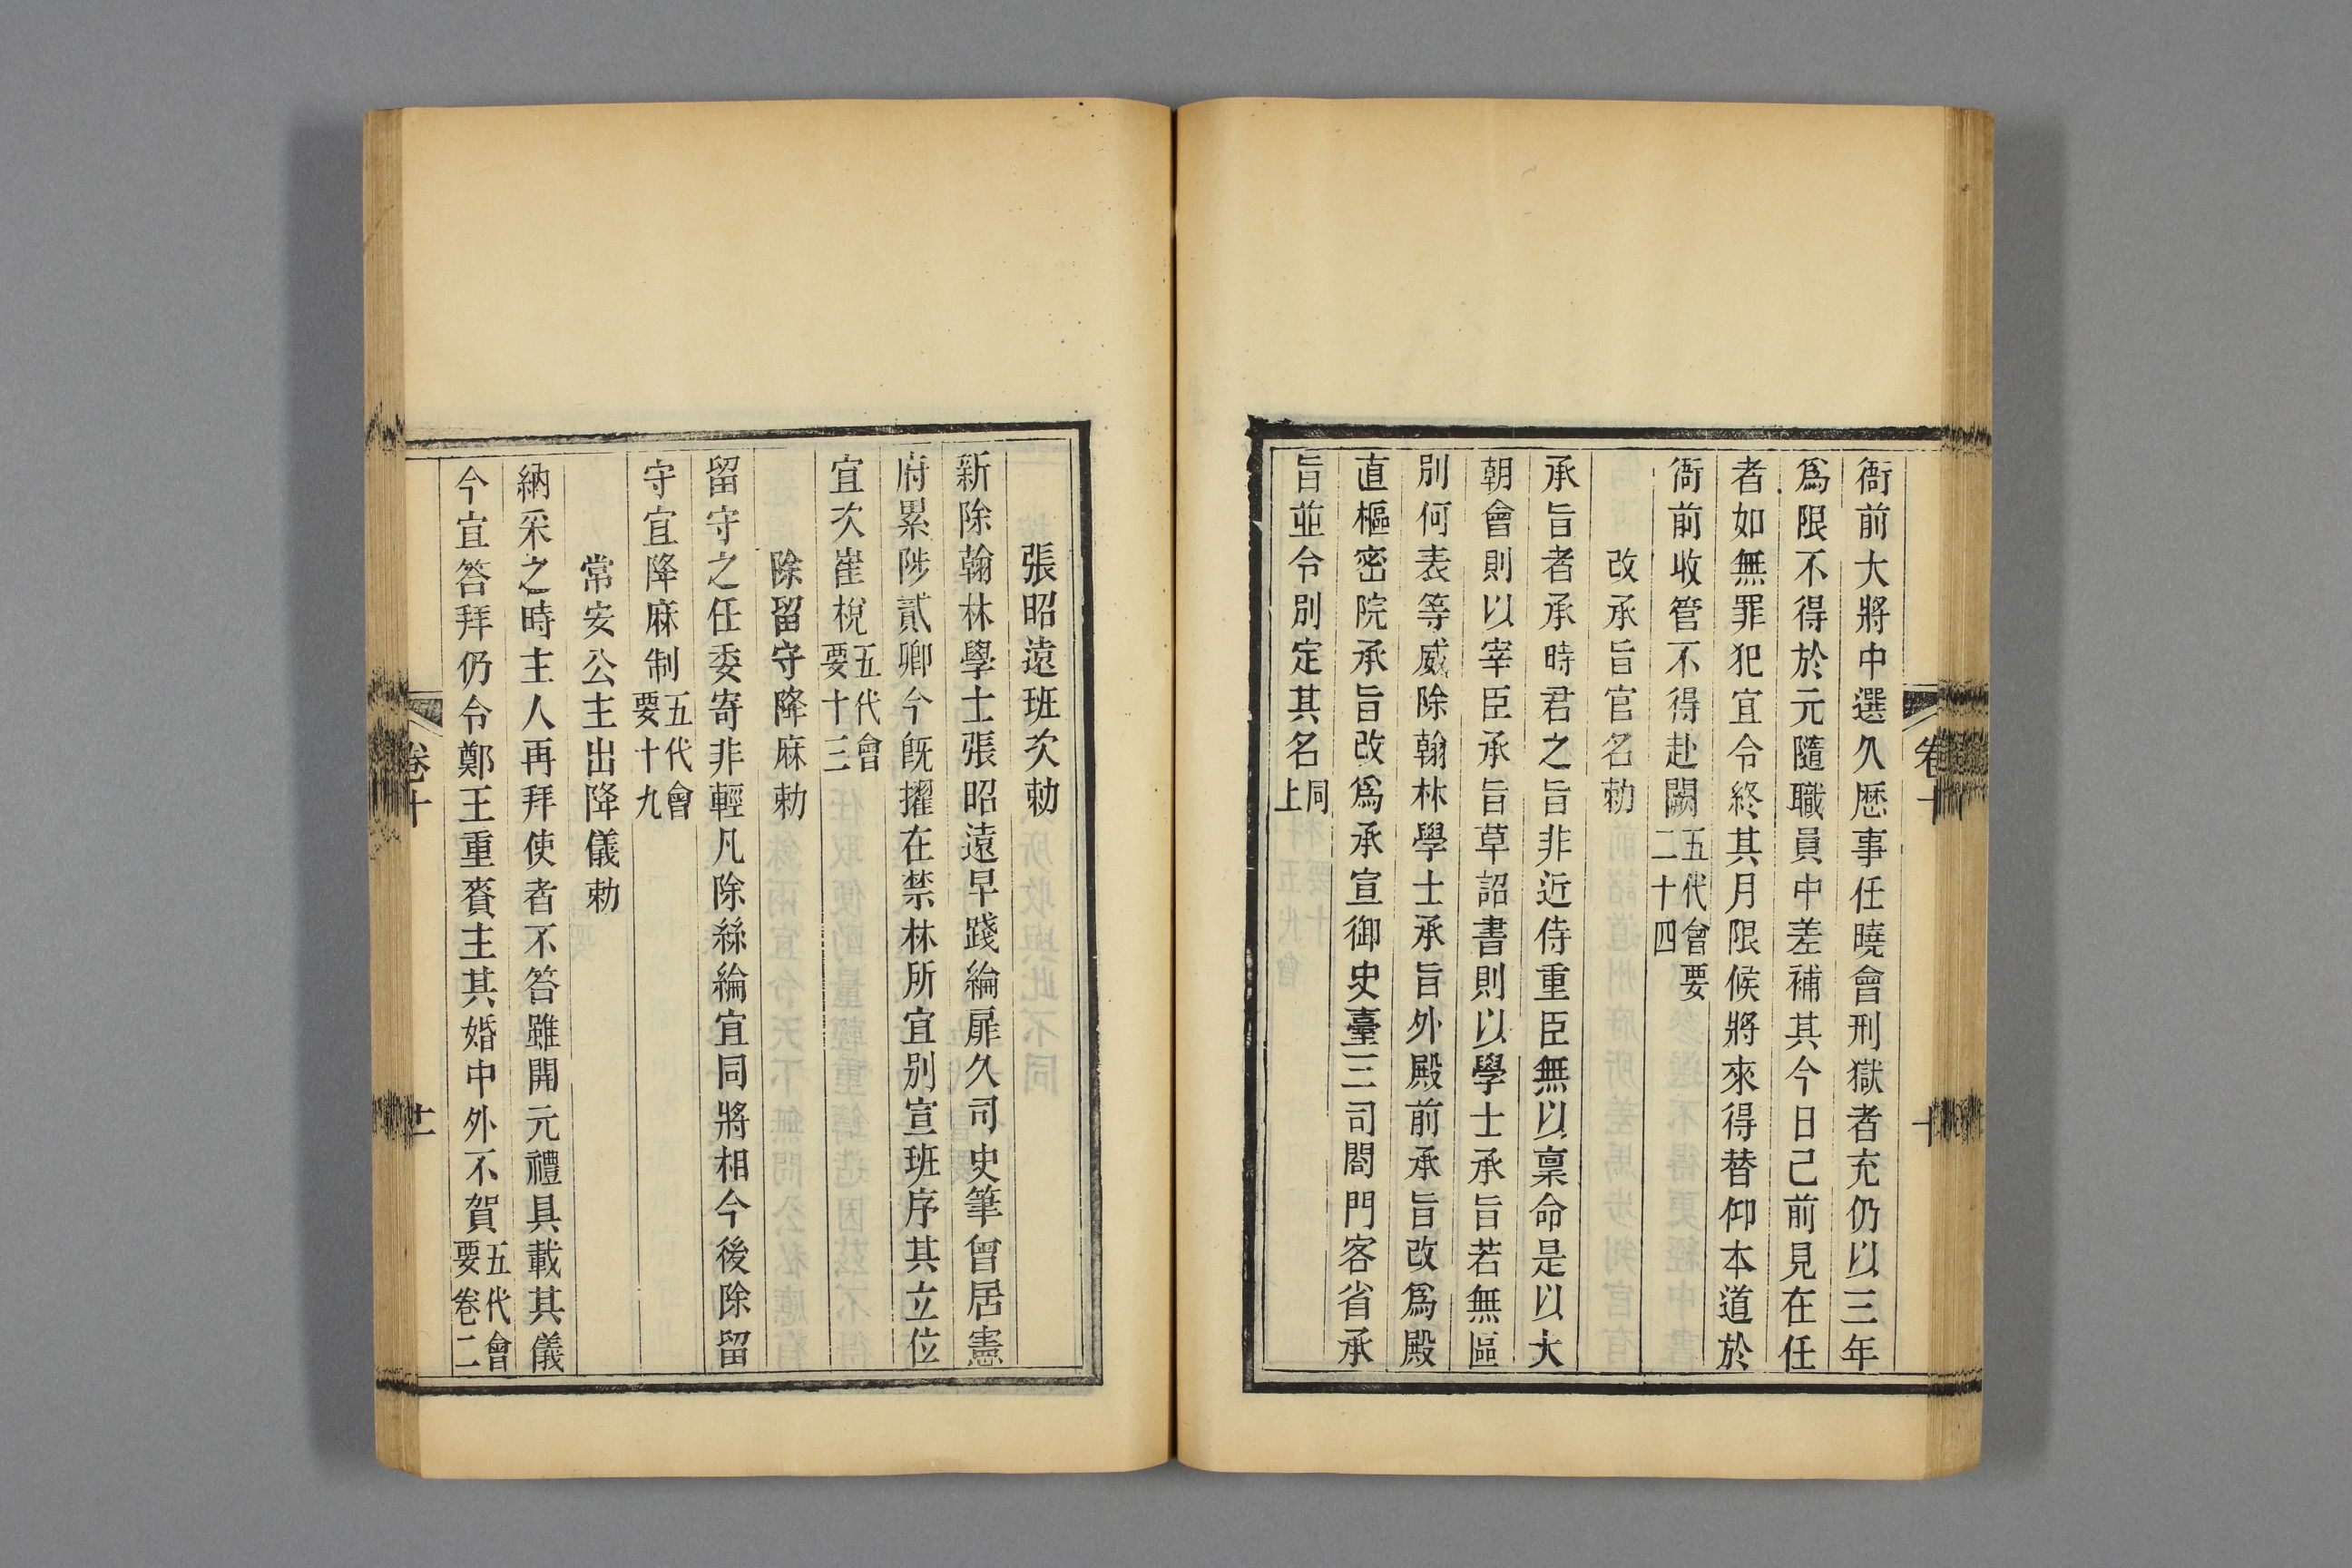 衙前大將中選久歷事任曉會刑獄者充仍以三年
爲限不得於元隨職員中差補其今日己前見在任
者如無罪犯宜令終其月限候將來得替仰本道於
衙前收管不得赴闕五代會要二十四
改承旨官名勅
承旨者承時君之旨非近侍重臣無以稟命是以大
朝會則以宰臣承旨草詔書則以學士承旨若無區
別何表等威除翰林學士承旨外殿前承旨改爲殿
直樞密院承旨改爲承宣御史臺三司閤門客省承
旨並令別定其名同上
張昭遠班次勅
新除翰林學士張昭遠早踐綸扉久司史筆曾居憲
府累陟貳卿今旣擢在禁林所宜別宣班序其立位
宜次崔梲五代會要十三
除留守降麻勅
留守之任委寄非輕凡除絲綸宜同將相今後除留
守宜降麻制五代會要十九
常安公主出降儀勅
納采之時主人再拜使者不答雖開元禮具載其儀
今宜答拜仍令鄭王重賚主其婚中外不賀五代會要卷二
卷十
十
卷十
十一